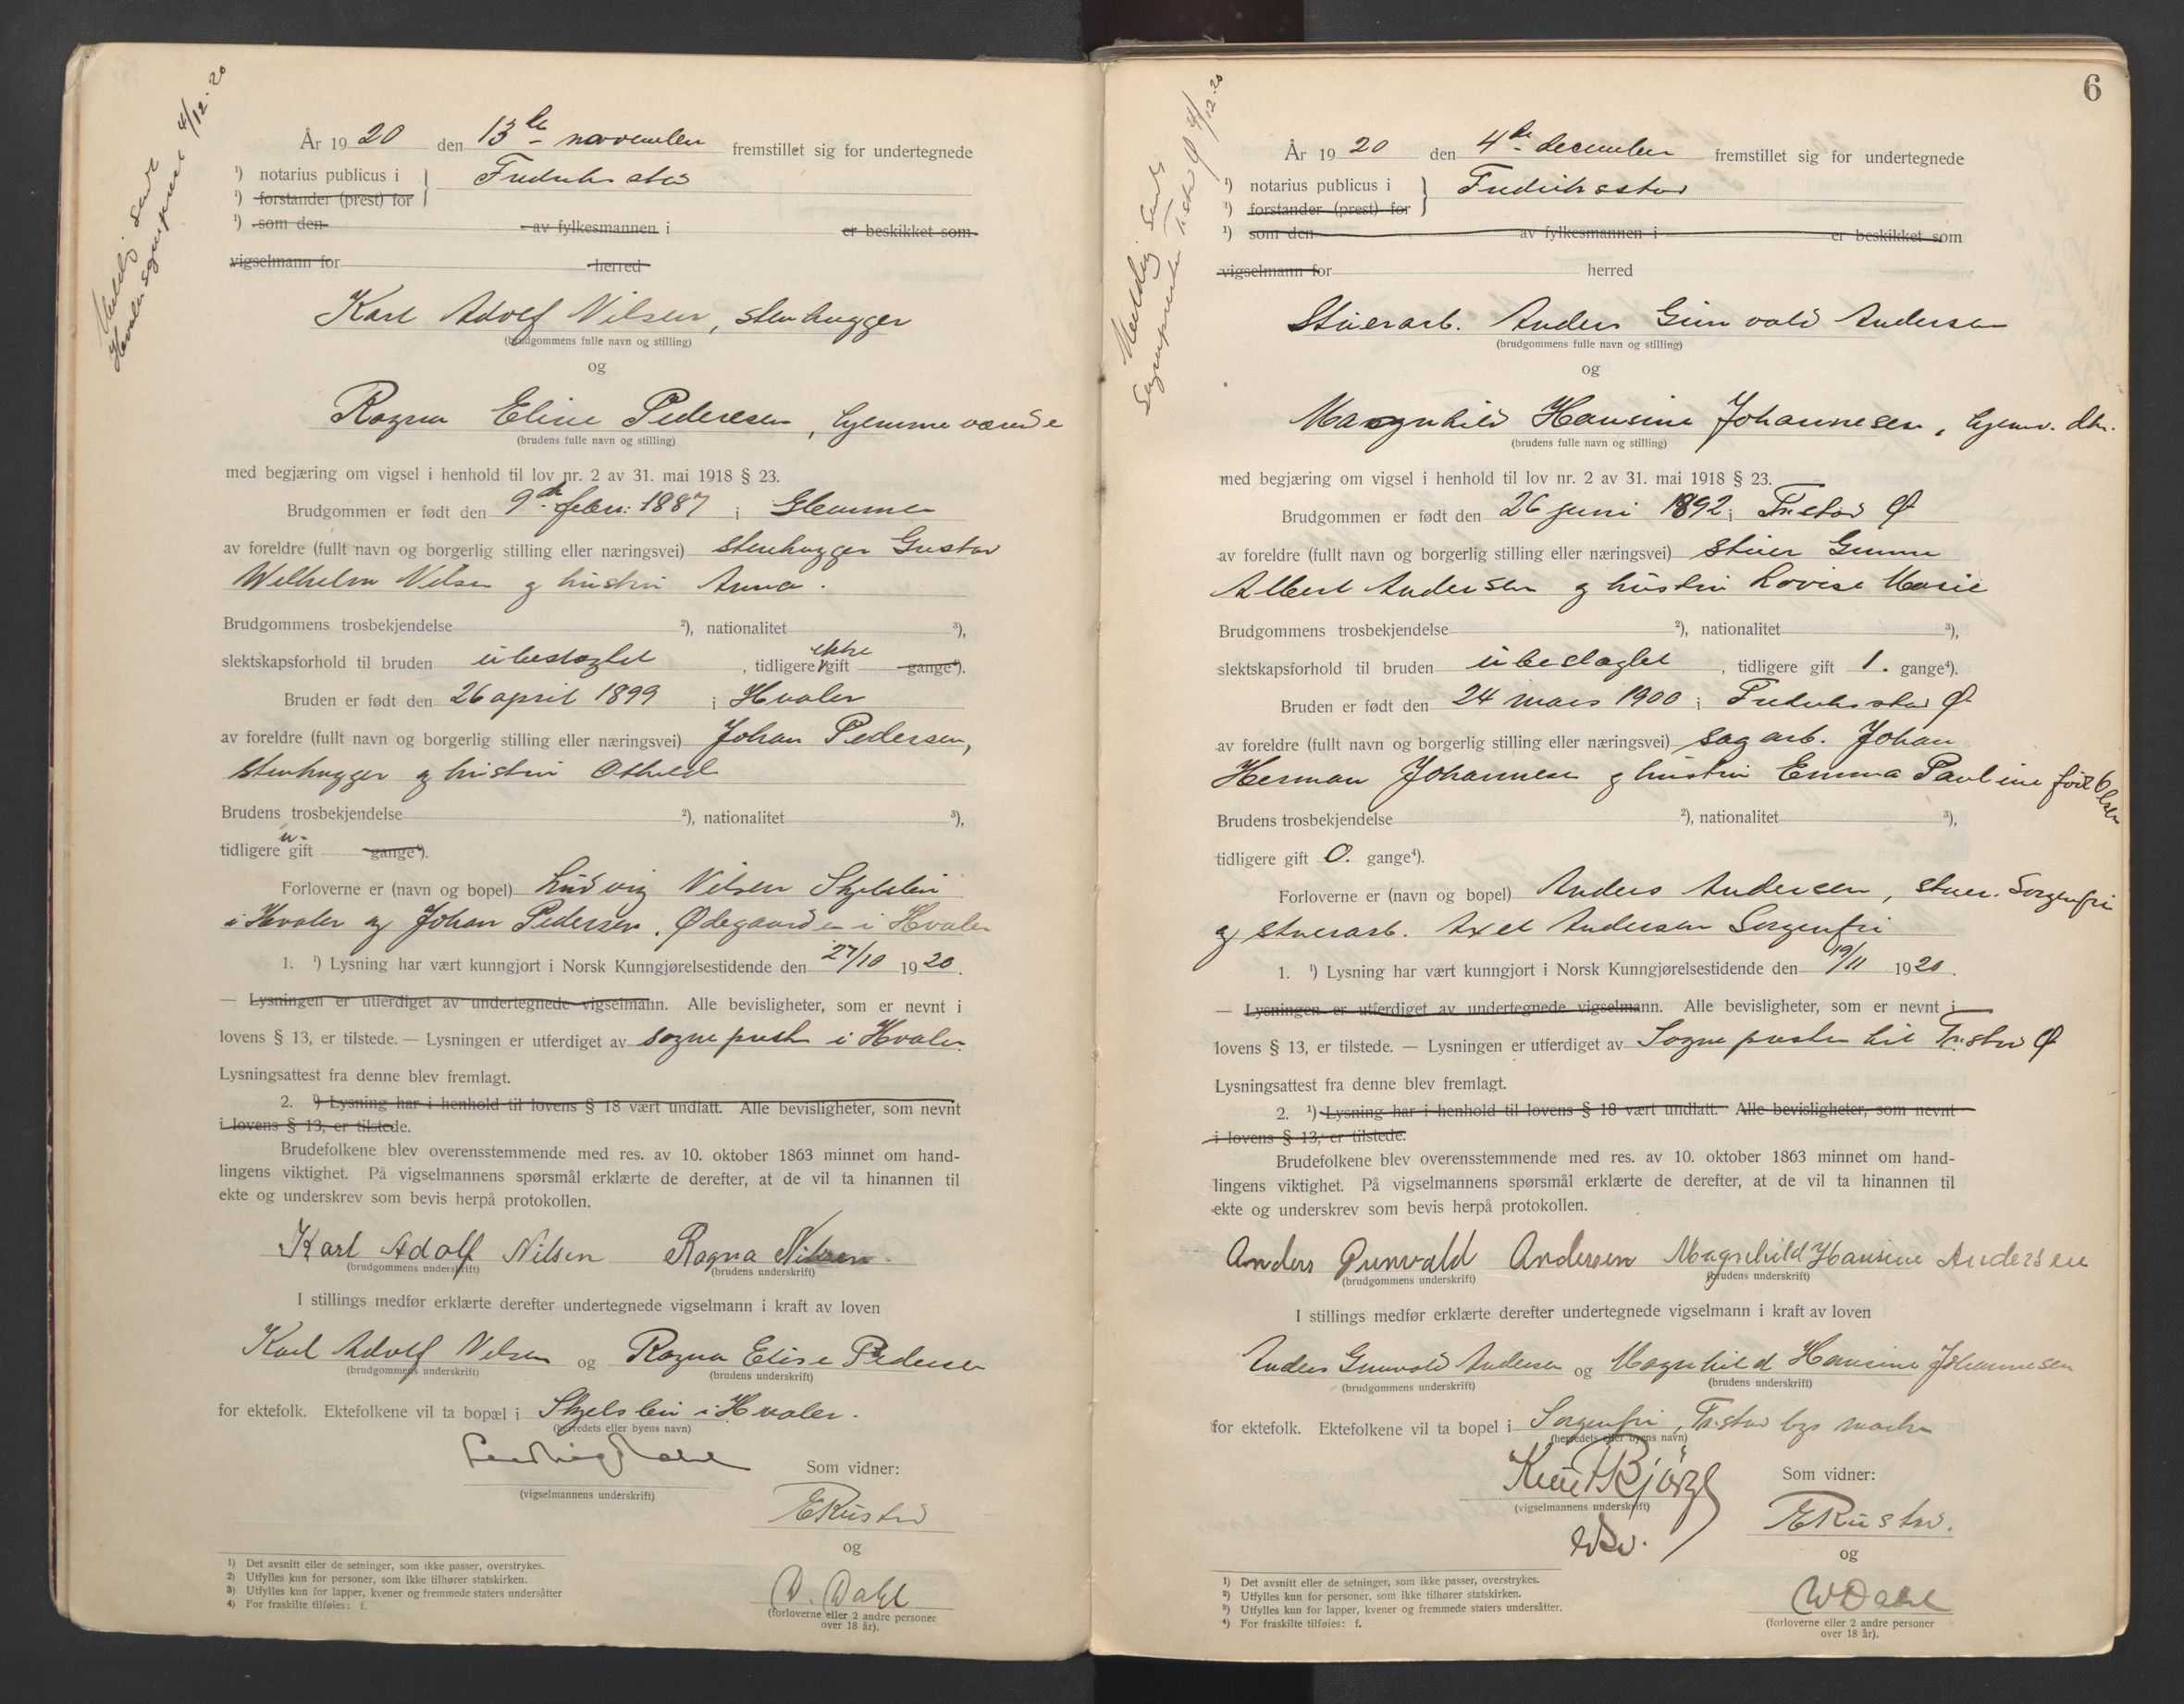 Meddelt sendt
Hvaler sogneprest 4/12-20
År 1920 den 13de november fremstillet sig for undertegnede
¹) notarius publicus i } Fredriksstad
¹) forstander (prest) for
¹) som den av fylkesmannen i er beskikket som
vigselmann for herred
Karl Adolf Nilsen, stenhugger
(brudgommens fulle navn og stilling)
og
Ragna Eline Pedersen, hjemmeværende
(brudens fulle navn og stilling)
med begjæring om vigsel i henhold til lov nr. 2 av 31. mai 1918 § 23.
Brudgommen er født den 9de febr: 1887 i Glemmen
av foreldre (fullt navn og borgerlig stilling eller næringsvei) stenhugger Gustav
Wilhelm Nilsen og hustru Anna.
Brudgommens trosbekjendelse ²), nationalitet ³),
slektskapsforhold til bruden ubeslægtet, tidligere ikke gift gange⁴).
Bruden er født den 26 april 1899 i Hvaler
av foreldre (fullt navn og borgerlig stilling eller næringsvei) Johan Pedersen,
stenhugger og hustru Othild
Brudens trosbekjendelse ²), nationalitet ³),
tidligere u-gift gange⁴).
Forloverne er (navn og bopel) Ludvig Nilsen
i Hvaler og Johan Pedersen, Ødegaarden i Hvaler
1. ¹) Lysning har vært kunngjort i Norsk Kunngjørelsestidende den 27/10 1920.
— Lysningen er utferdiget av undertegnede vigselmann. Alle bevisligheter, som er nevnt i
lovens § 13, er tilstede. — Lysningen er utferdiget av sogneprest i Hvaler.
Lysningsattest fra denne blev fremlagt.
2. ¹) Lysning har i henhold til lovens § 18 vært undlatt. Alle bevisligheter, som nevnt
i lovens § 13, er tilstede.
Brudefolkene blev overensstemmende med res. av 10. oktober 1863 minnet om hand-
lingens viktighet. På vigselmannens spørsmål erklærte de derefter, at de vil ta hinannen til
ekte og underskrev som bevis herpå protokollen.
Karl Adolf Nilsen Ragna Nilsen.
(brudgommens underskrift) (brudens underskrift)
I stillings medfør erklærte derefter undertegnede vigselmann i kraft av loven
Karl Adolf Nilsen og Ragna Elise Pedersen
(brudgommens underskrift) (brudens underskrift)
for ektefolk. Ektefolkene vil ta bopæl i i Hvaler.
(herredets eller byens navn)
Som vidner:
(vigselmannens underskrift)
ERustad
og
W. Dahl
(forloverne eller 2 andre personer
over 18 år).
1) Det avsnitt eller de setninger, som ikke passer, overstrykes.
2) Utfylles kun for personer, som ikke tilhører statskirken.
3) Utfylles kun for lapper, kvener og fremmede staters undersåtter
4) For fraskilte tilføies: f.
6
Meddelt sendt
Sognepresten Fr.stad Ø 4/12-20
År 1920 den 4de december fremstillet sig for undertegnede
¹) notarius publicus i } Fredriksstad
¹) forstander (prest) for
¹) som den av fylkesmannen i er beskikket som
vigselmann for herred
Stuerarb. Anders Gunvald Andersen
(brudgommens fulle navn og stilling)
og
Magnhild Hansine Johannesen, hjemv. dtr.
(brudens fulle navn og stilling)
med begjæring om vigsel i henhold til lov nr. 2 av 31. mai 1918 § 23.
Brudgommen er født den 26 juni 1892 i Fr.stad Ø
av foreldre (fullt navn og borgerlig stilling eller næringsvei) stuer
Albert Andersen og hustru Lovise Marie
Brudgommens trosbekjendelse ²), nationalitet ³),
slektskapsforhold til bruden ubeslægtet, tidligere gift 1. gange⁴).
Bruden er født den 24 mars 1900 i Fredriksstad Ø
av foreldre (fullt navn og borgerlig stilling eller næringsvei) sagarb. Johan
Herman Johannesen og hustru Emma Pauline født Olsen
Brudens trosbekjendelse ²), nationalitet ³),
tidligere gift 0. gange⁴).
Forloverne er (navn og bopel) Anders Andersen, stuer. Sorgenfri
og stuerarb. Axel Andersen Sorgenfri
1. ¹) Lysning har vært kunngjort i Norsk Kunngjørelsestidende den 19/11 1920.
— Lysningen er utferdiget av undertegnede vigselmann. Alle bevisligheter, som er nevnt i
lovens § 13, er tilstede. — Lysningen er utferdiget av Sognepresten til Fr.stad Ø
Lysningsattest fra denne blev fremlagt.
2. ¹) Lysning har i henhold til lovens § 18 vært undlatt. Alle bevisligheter, som nevnt
i lovens § 13, er tilstede.
Brudefolkene blev overensstemmende med res. av 10. oktober 1863 minnet om hand-
lingens viktighet. På vigselmannens spørsmål erklærte de derefter, at de vil ta hinannen til
ekte og underskrev som bevis herpå protokollen.
Anders Gunvald Andersen Magnhild Hansine Andersen
(brudgommens underskrift) (brudens underskrift)
I stillings medfør erklærte derefter undertegnede vigselmann i kraft av loven
Anders Gunvald Andersen og Magnhild Hansine Johannesen
(brudgommens underskrift) (brudens underskrift)
for ektefolk. Ektefolkene vil ta bopel i Sorgenfri, Fr.stad bys marker
(herredets eller byens navn)
Knut Bjørge
Som vidner:
(vigselmannens underskrift)
ERustad.
og
WDahl
(forloverne eller 2 andre personer
over 18 år).
¹) Det avsnitt eller de setninger, som ikke passer, overstrykes.
²) Utfylles kun for personer, som ikke tilhører statskirken.
³) Utfylles kun for lapper, kvener og fremmede staters undersåtter.
⁴) For fraskilte tilføies: f.